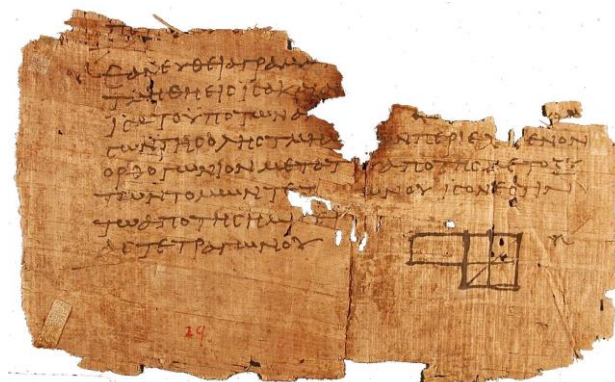 ΕΑΝ ΕΥΘΕΙΑ ΓΡΑΜ
ΤΜΗΘΗ ΕΙϹ ΙϹΑ ΚΑΙ
ΙϹΑ ΤΟ ΥΠΟ ΤΩΝ Α
ϹΩΝ ΤΗϹ ΟΛΗϹ ΤΜΗ Ν ΠΕΡΙΕΧΟΜΕΝΟΝ
ΟΡΘΟΓΩΝΙΟΝ ΜΕΤΑ ΤΟΥ ΑΠΟ ΤΗϹ ΜΕΤΟΞΥ
ΤΩΝ ΤΟΜΩΝ ΤΕΤ ΩΝΟΥ ΙϹΟΝ ΕϹΤΙΝ
ΤΩ ΑΠΟ ΤΗϹ ΗΜΙϹΕΙ
ΑϹ ΤΕΤΡΑΓΩΝΟΥ
29